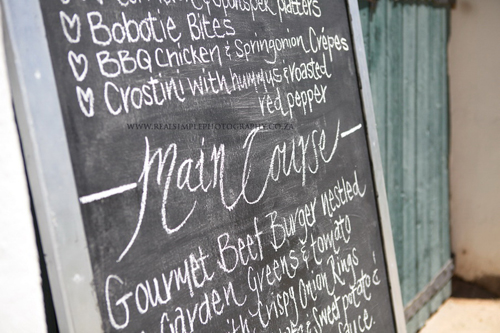 & spanspek platters
Bobotie Bites
BBQ Chicken & Springonion Crépes
Crostini with hummus & roasted
red pepper
WWW.REALSIMPLEPHOTOGRAPHY.CO.ZA
Main Course
Gourmet Beef Burger nestled
Garden Greens & tomato
with Crispy Onion Rings
& sweet potato &
sauce.